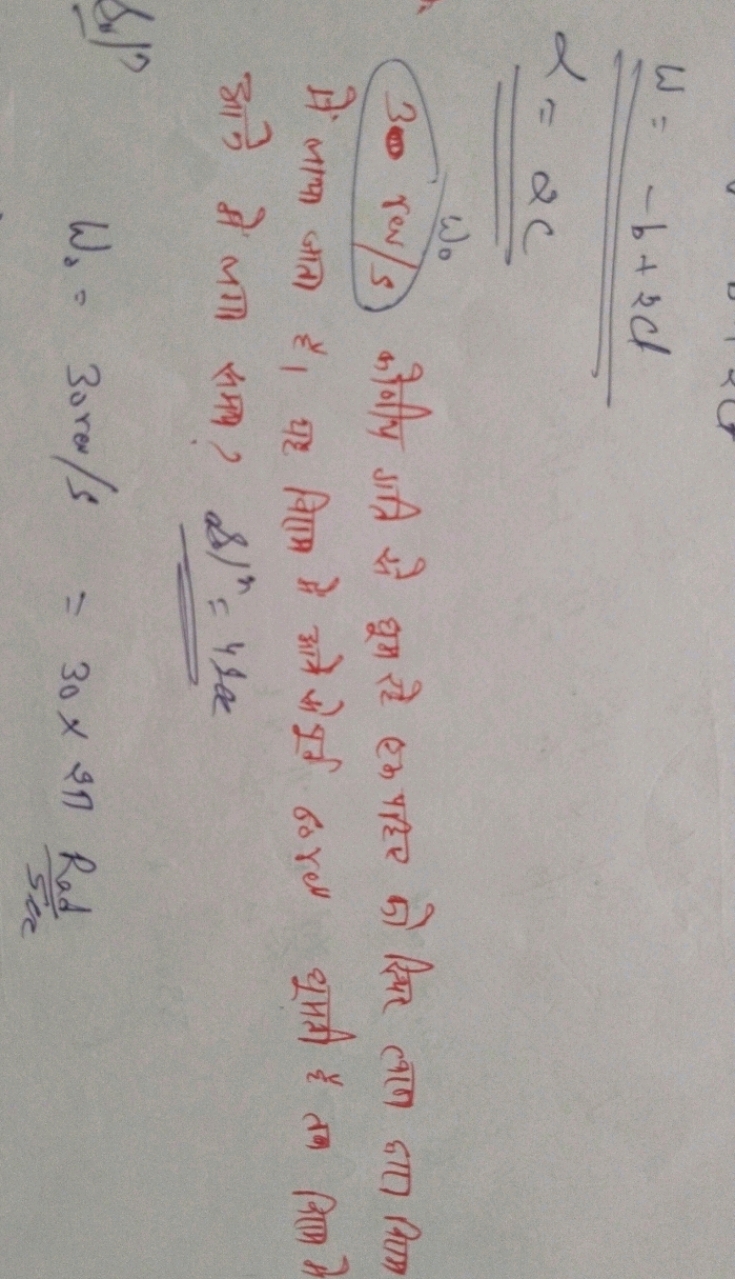 ω = -b + 2ct
α = 2c
ω₀
30 rev/s कोणीय गति से घूम रहे एक पहिए को स्थिर त्वरण द्वारा विराम
में लाया जाता है। यह विराम में आने से पूर्व 60 rev घूमती है तब विराम में
आने में लगा समय? Solⁿ = 4 sec
Solⁿ
ω₀ = 30 rev/s = 30 × 2π Rad/sec